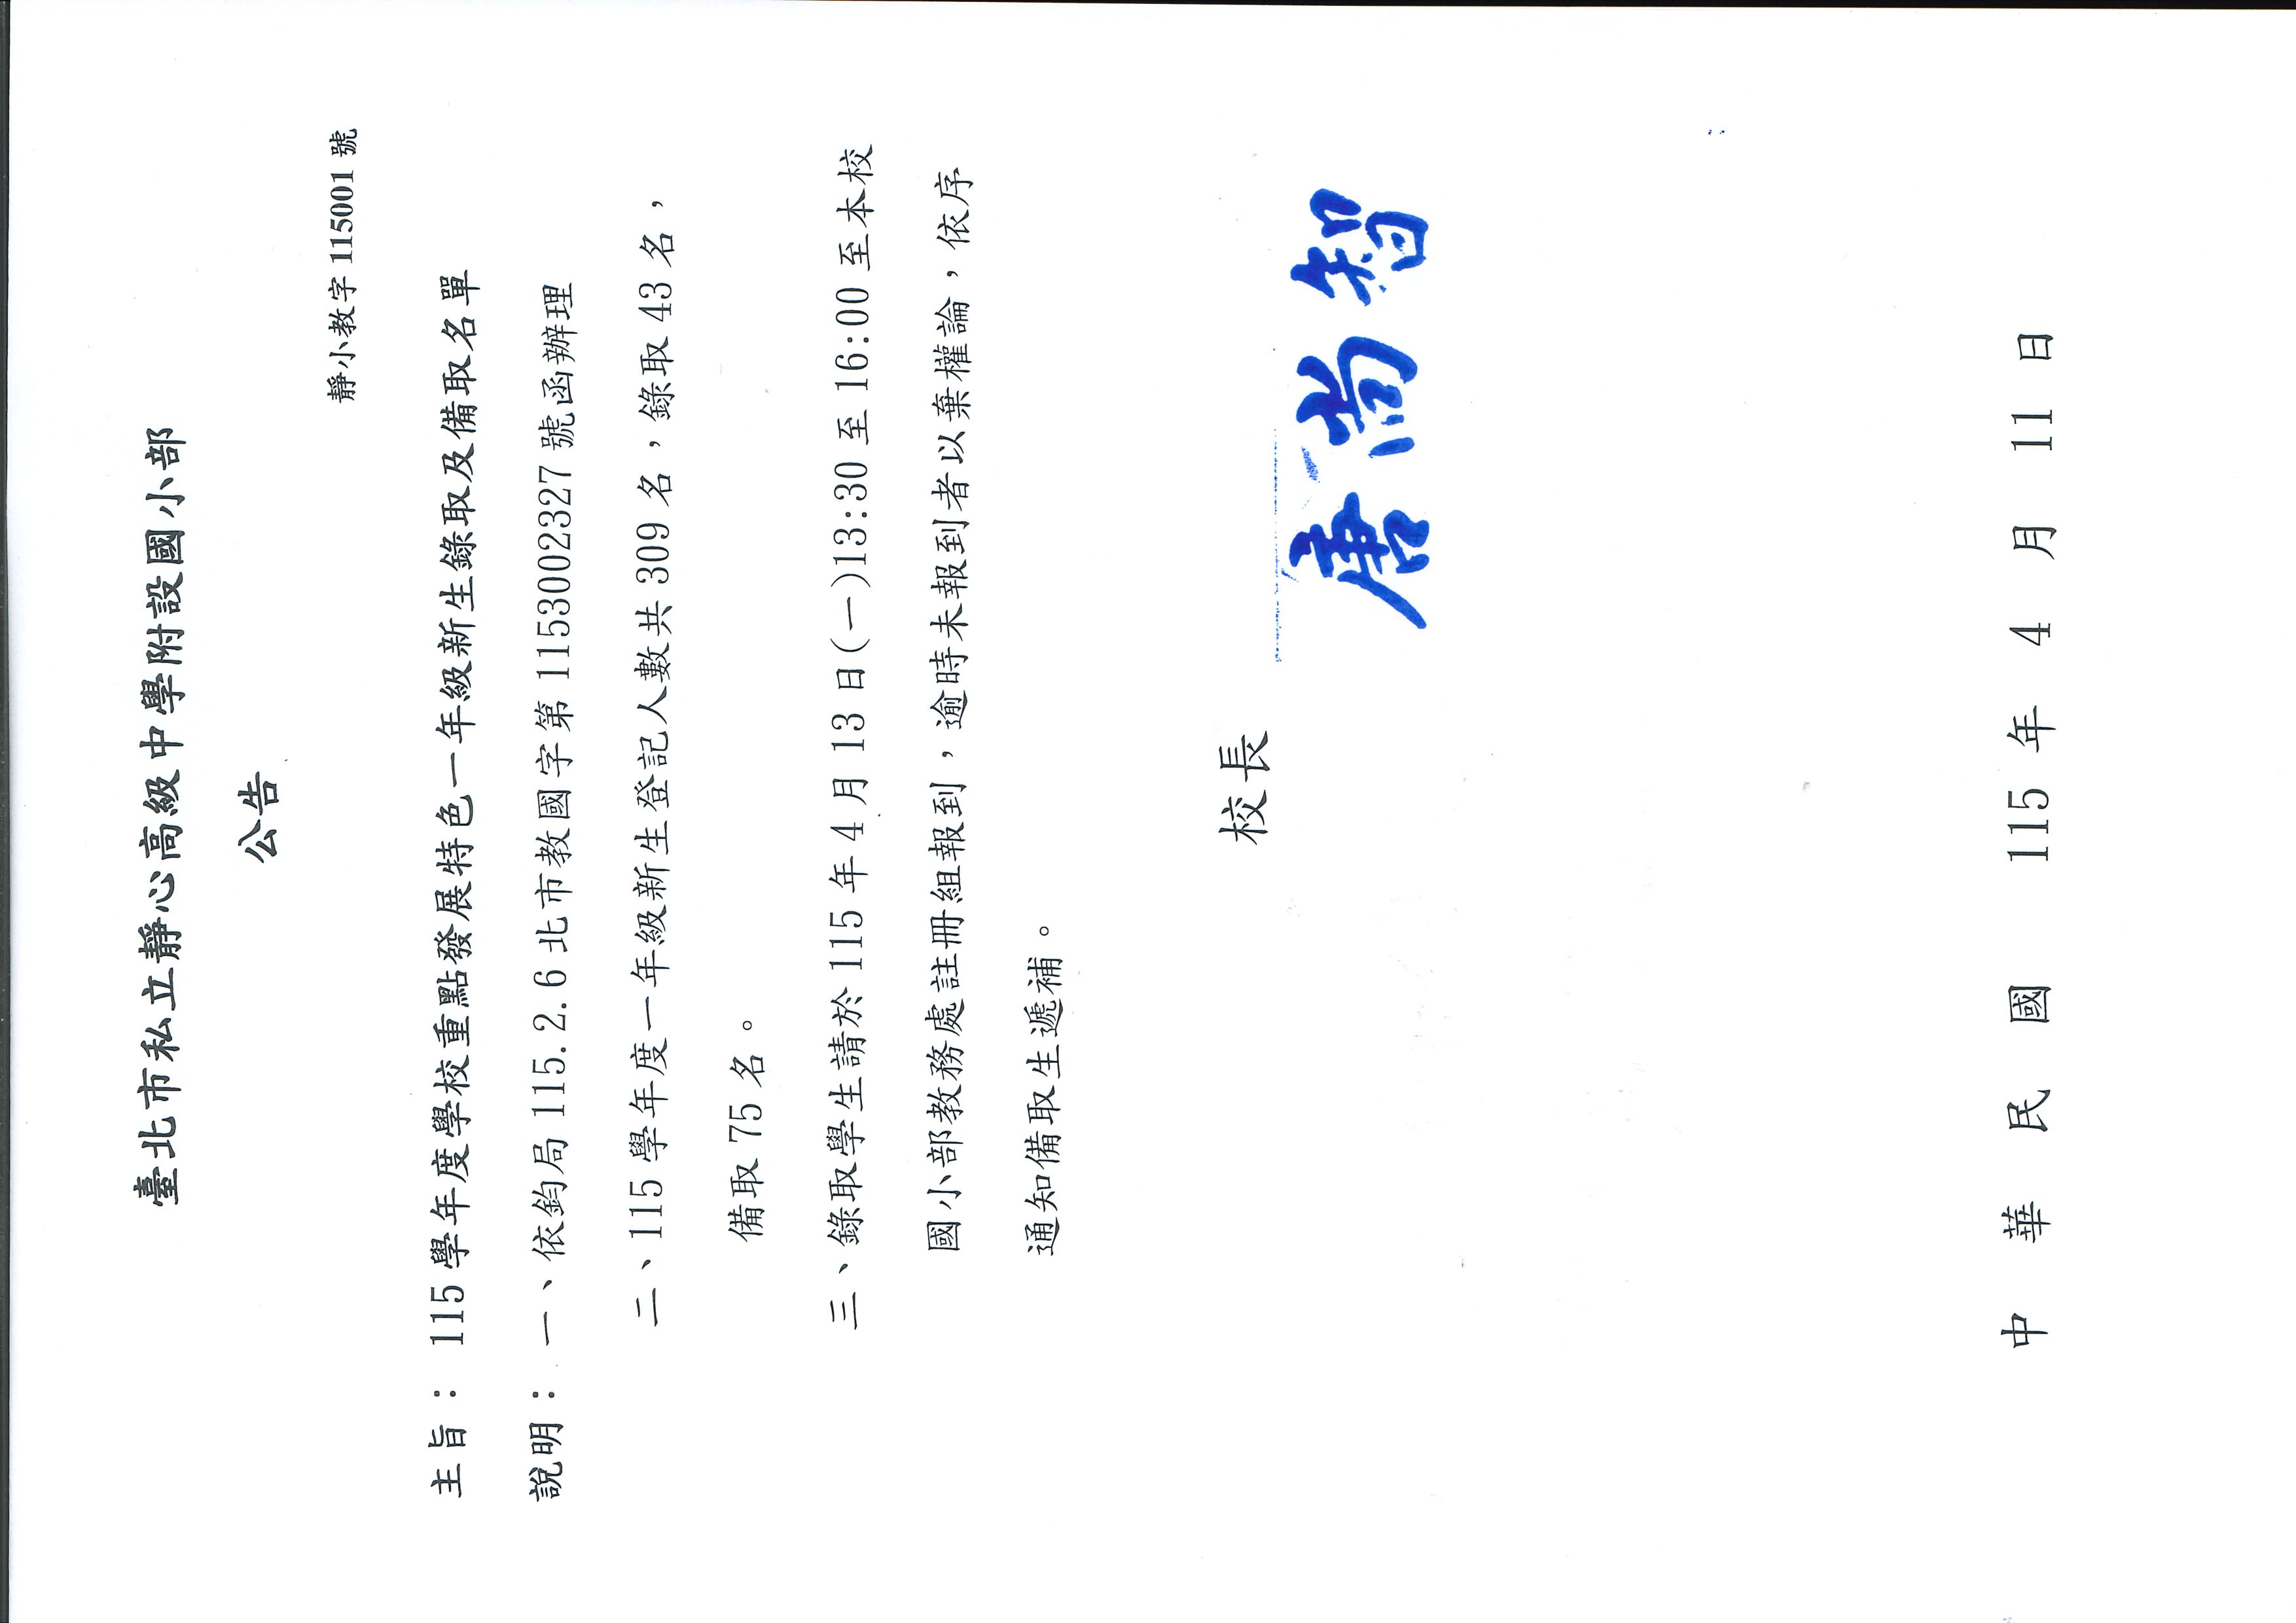 臺北市私立靜心高級中學附設國小部
公告
靜小教字 115001 號
主旨：115 學年度學校重點發展特色一年級新生錄取及備取名單
說明：一、依鈞局 115.2.6 北市教國字第 1153002327 號函辦理
二、115 學年度一年級新生登記人數共 309 名，錄取 43 名，
備取 75 名。
三、錄取學生請於 115 年 4 月 13 日(一)13:30 至 16:00 至本校
國小部教務處註冊組報到，逾時未報到者以棄權論，依序
通知備取生遞補。
校長
唐尚智
中 華 民 國 115 年 4 月 11 日